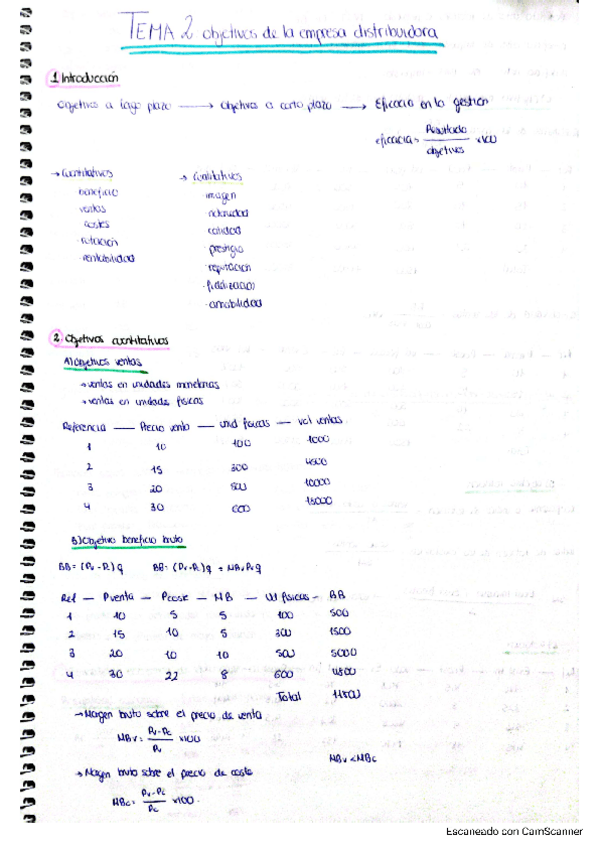 TEMA 2 objetivos de la empresa distribuidora
1 Introducción
Objetivos a largo plazo → Objetivos a corto plazo → Eficacia en la gestión
eficacia = Resultado / objetivos x100
→ Cuantitativos
beneficio
ventas
costes
- rotación
- rentabilidad
→ Cualitativos
imagen
notoriedad
calidad
- prestigio
- reputación
- fidelización
- amabilidad
2 Objetivos cuantitativos
A) Objetivos ventas
→ ventas en unidades monetarias
→ ventas en unidades fisicas
Referencia — Precio venta — und fisicas — vol ventas
1 10 100 1000
2 15 300 4500
3 20 500 10000
4 30 600 18000
B) Objetivo beneficio bruto
BB = (Pv - Pc) q BB = (Pv - Pc) q = MBv Pv q
Ref — Pventa — Pcoste — MB — Ud fisicas - BB
1 10 5 5 100 500
2 15 10 5 300 1500
3 20 10 10 500 5000
4 30 22 8 600 4800
Total 11800
→ Margen bruto sobre el precio de venta
MBv = Pv - Pc / Pv x100
MBv < MBc
→ Margen bruto sobre el precio de coste
MBc = Pv - Pc / Pc x100.
Escaneado con CamScanner